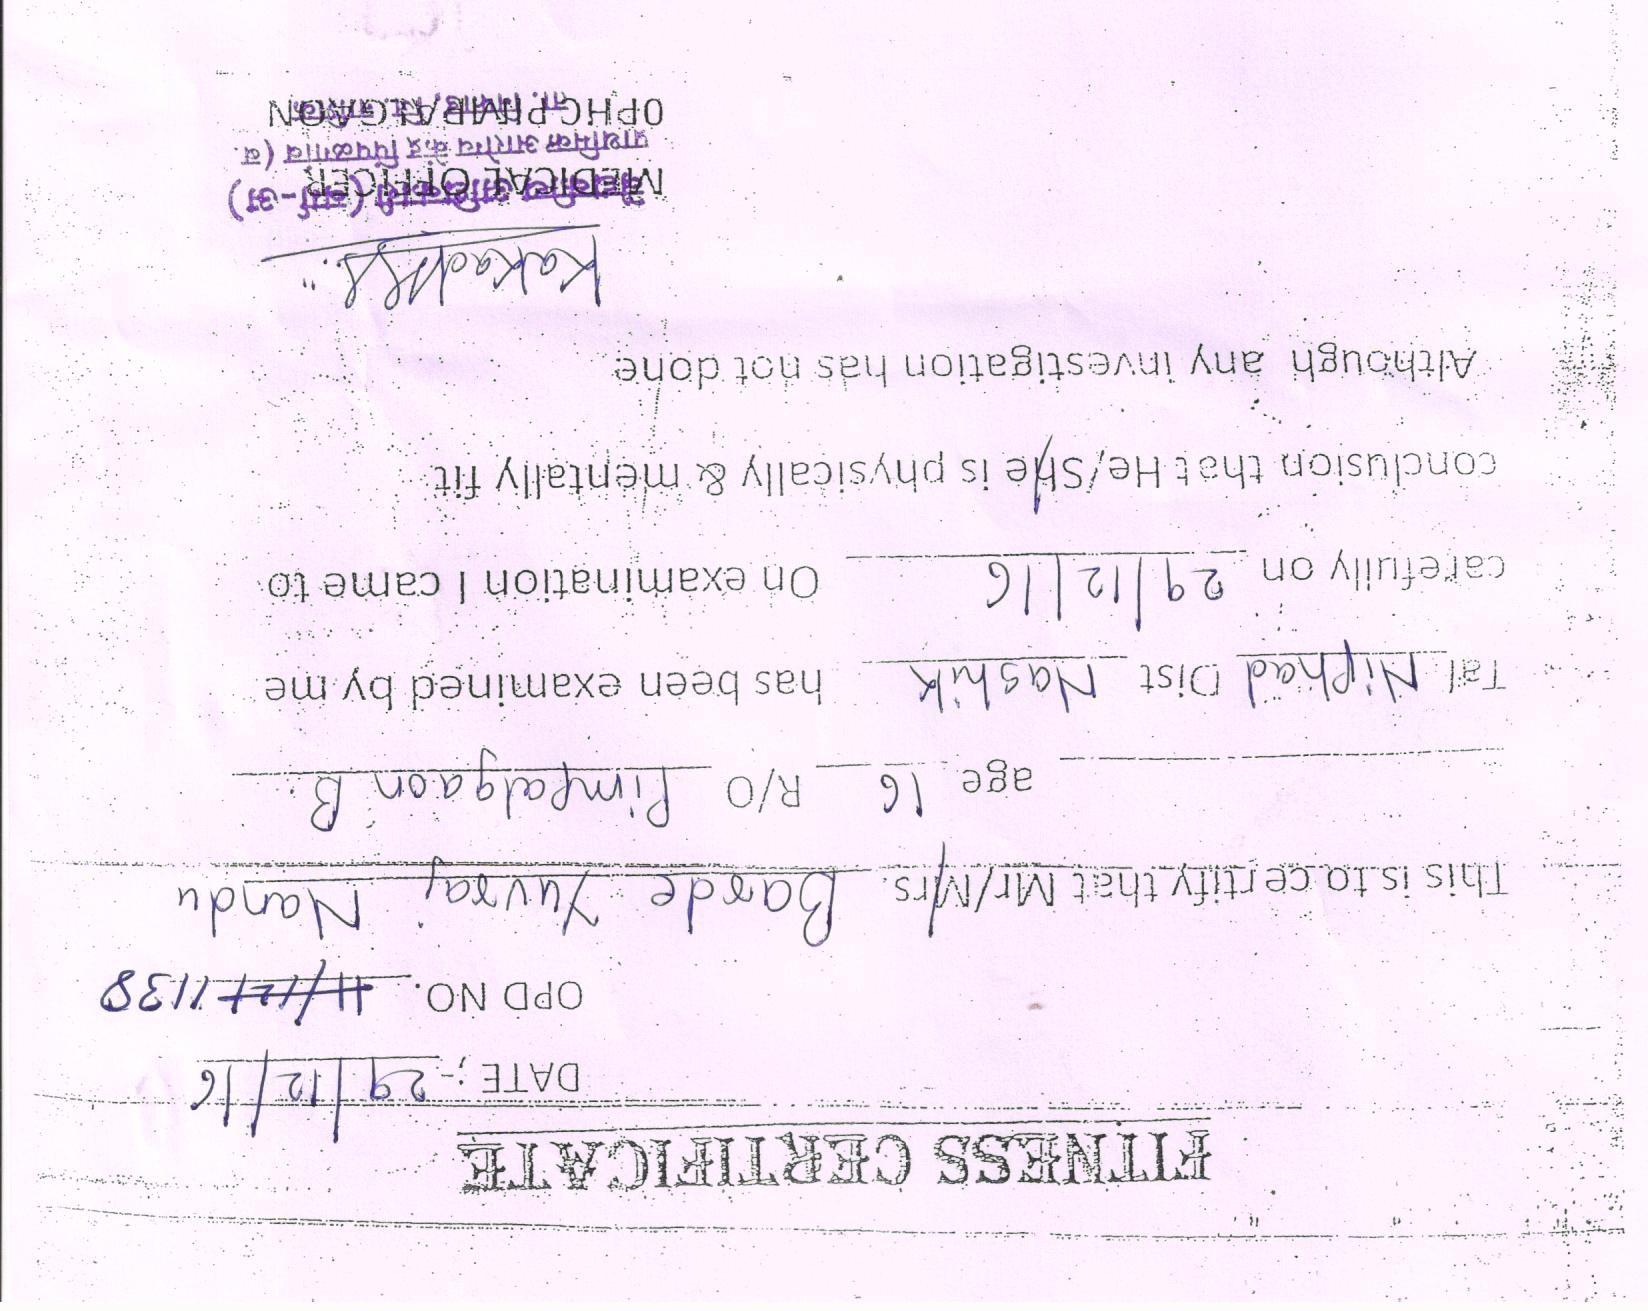 FITNESS CERTIFICATE
DATE ;- 29/12/16
OPD NO. 1138
This is to certify that Mr/Mrs. Barde Yuvraj Nandu
age 16 R/O Pimpalgaon B.
Tal. Niphad Dist Nashik has been examined by me
carefully on 29/12/16 On examination I came to
conclusion that He/She is physically & mentally fit
Although any investigation has not done
MEDICAL OFFICER
वैद्यकीय अधिकारी (वर्ग-अ)
प्राथमिक आरोग्य केंद्र पिंपळगांव (ब.
OPHC PIMPALGAON